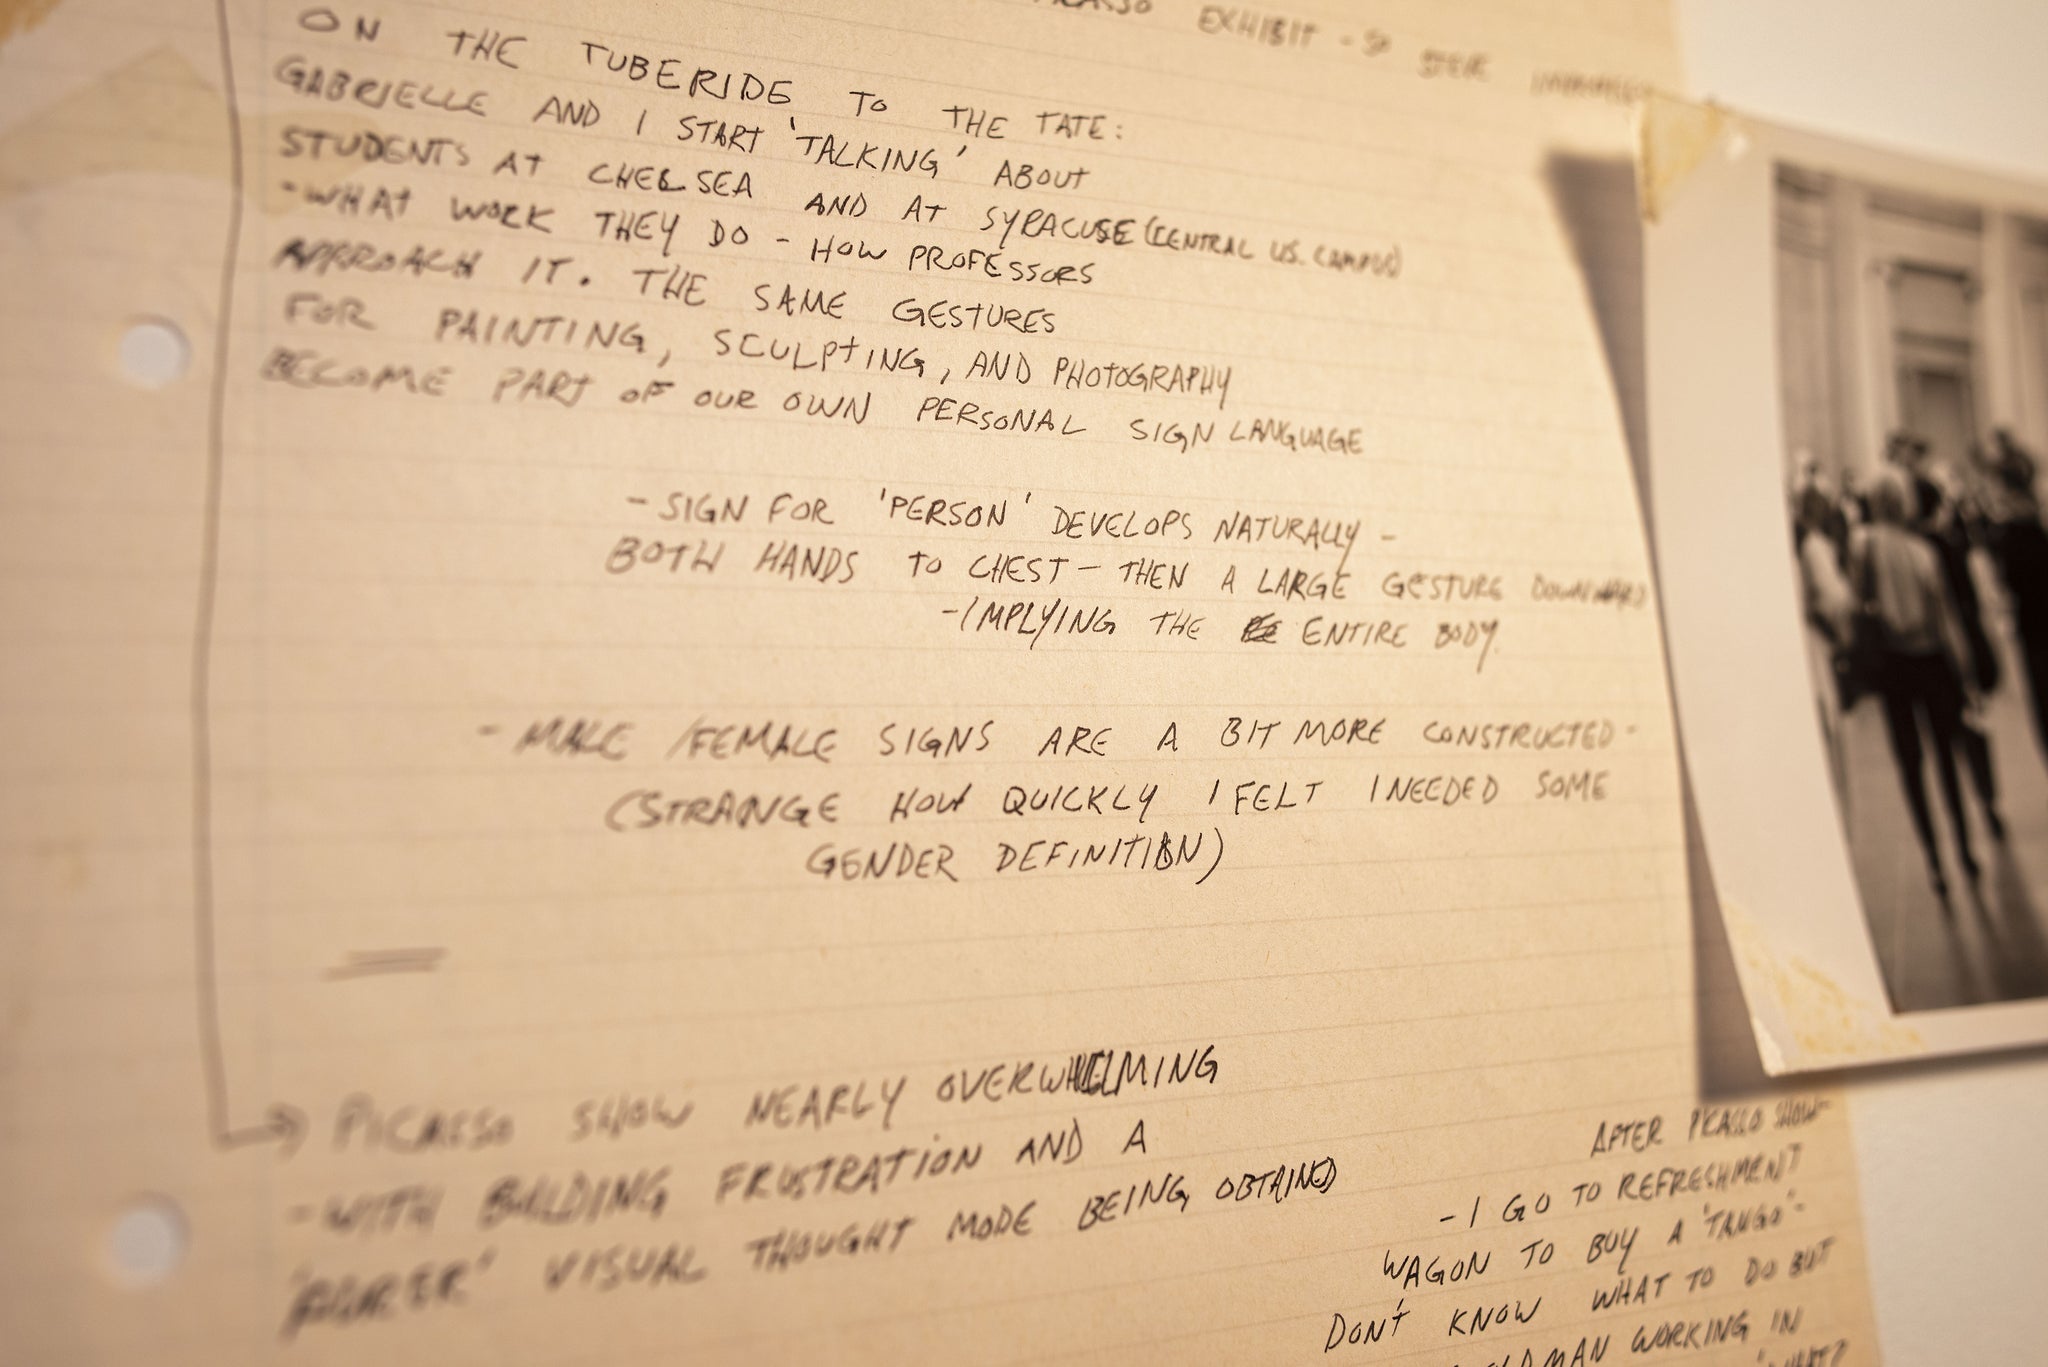 EXHIBIT -
ON THE TUBERIDE TO THE TATE:
GABRIELLE AND I START 'TALKING' ABOUT
STUDENTS AT CHELSEA AND AT SYRACUSE (CENTRAL US. CAMPUS)
-WHAT WORK THEY DO - HOW PROFESSORS
APPROACH IT. THE SAME GESTURES
FOR PAINTING, SCULPTING, AND PHOTOGRAPHY
BECOME PART OF OUR OWN PERSONAL SIGN LANGUAGE
- SIGN FOR 'PERSON' DEVELOPS NATURALLY -
BOTH HANDS TO CHEST - THEN A LARGE GESTURE DOWNWARD
- IMPLYING THE ENTIRE BODY.
- MALE /FEMALE SIGNS ARE A BIT MORE CONSTRUCTED -
(STRANGE HOW QUICKLY I FELT I NEEDED SOME
GENDER DEFINITION)
→ PICASSO SHOW NEARLY OVERWHELMING
- WITH BUILDING FRUSTRATION AND A
"PURER" VISUAL THOUGHT MODE BEING OBTAINED
AFTER PICASSO SHOW-
- I GO TO REFRESHMENT
WAGON TO BUY A 'TANGO' -
DON'T KNOW WHAT TO DO BUT
MAN WORKING IN
'WHAT?